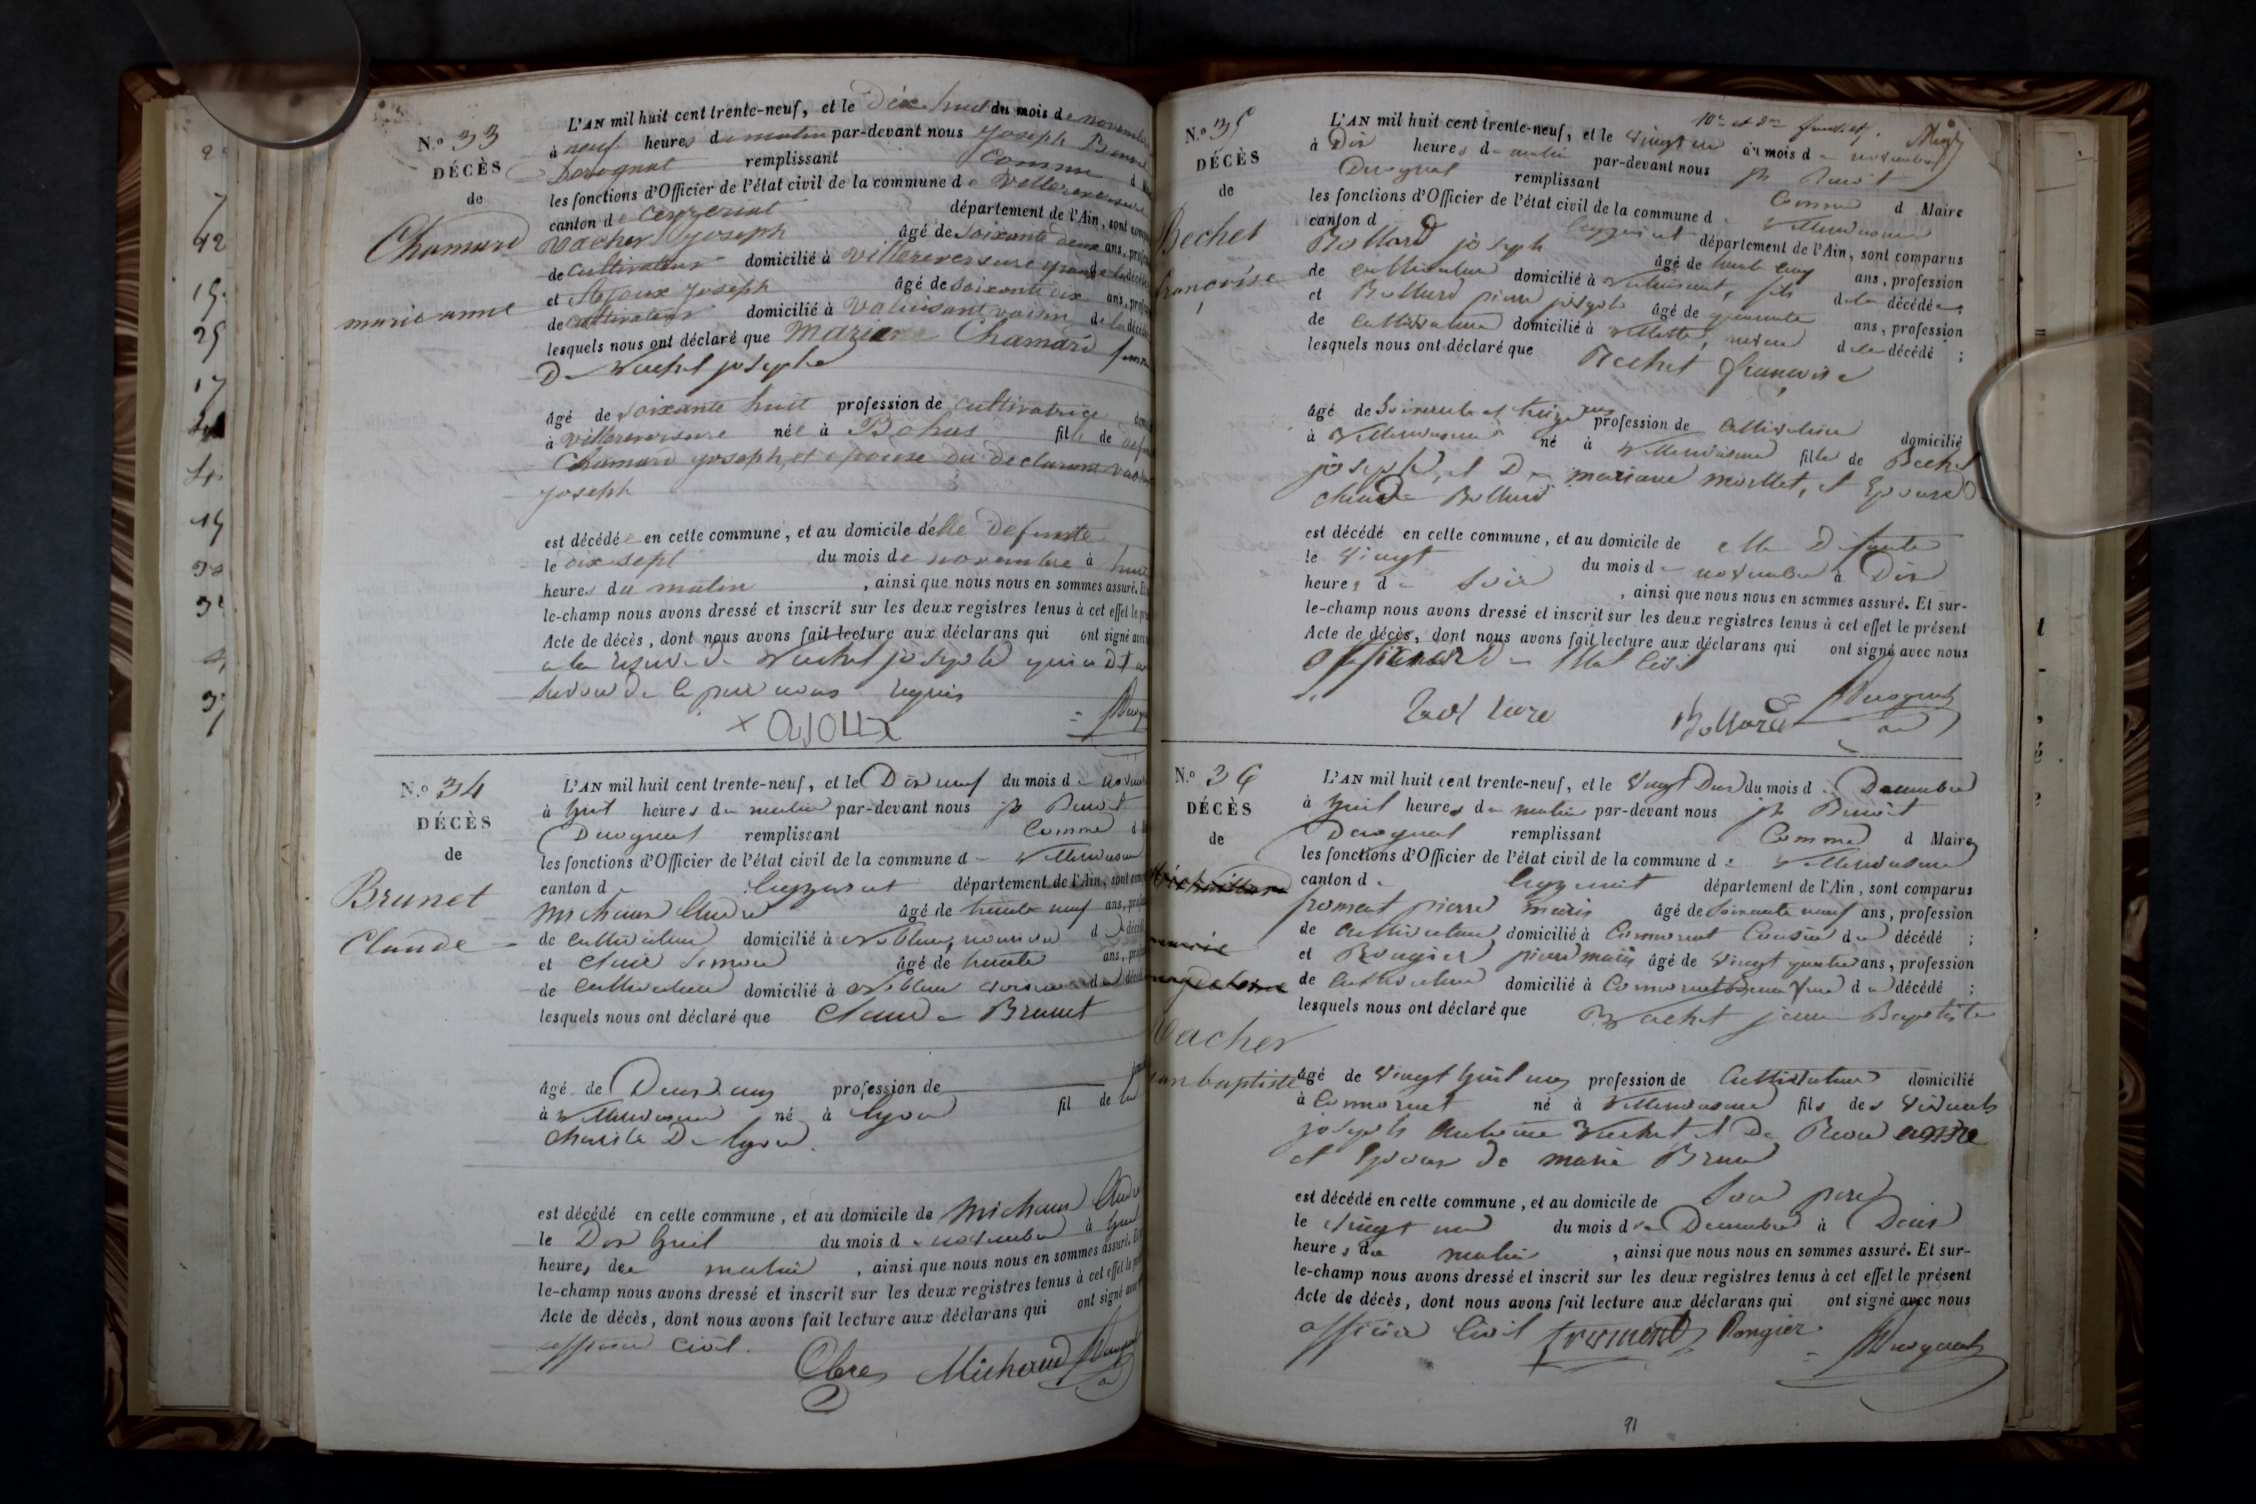 N.º 33
DÉCÈS
de
Chamard
marie anne
L'AN mil huit cent trente-neuf, et le Dix huit du mois de novembre
à neuf heures du matin par-devant nous Joseph Benoit
remplissant comme
les fonctions d'Officier de l'état civil de la commune de Villereversure
canton de Ceyzeriat département de l'Ain, sont
Vacher Joseph âgé de soixante deux ans,
de cultivateur domicilié à Villereversure
et Joseph âgé de soixante six ans,
de cultivateur domicilié à voisin de la
lesquels nous ont déclaré que Mariane Chamard femme
De Vachet josephe
âgé de soixante huit profession de cultivatrice
à villereversure née à Bohas fille de
Chamard joseph, et epouse du declarant
joseph
est décédée en cette commune, et au domicile d'elle defunte
le dix sept du mois de novembre à huit
heures du matin, ainsi que nous nous en sommes assuré. Et
le-champ nous avons dressé et inscrit sur les deux registres tenus à cet effet le
Acte de décès, dont nous avons fait lecture aux déclarans qui ont signé avec
a la reserve de Vachet joseph qui a dit
savoir de ce par nous requis
N.º 34
DÉCÈS
de
Brunet
Claude
L'AN mil huit cent trente-neuf, et le Dix neuf du mois de
à huit heures du matin par-devant nous jh Benoit
remplissant Comme
les fonctions d'Officier de l'état civil de la commune de Villereversure
canton de Ceyzeriat département de l'Ain, sont
Michaud André âgé de trente neuf ans,
de cultivateur domicilié à
et Claire Simon âgé de trente ans,
de cultivateur domicilié à
lesquels nous ont déclaré que Claude Brunet
âgé de Deux ans profession de
à Villereversure né à lyon fil de la
charité De lyon.
est décédé en cette commune, et au domicile de Michaud André
le Dix huit du mois de novembre à huit
heures du matin, ainsi que nous nous en sommes assuré. Et
le-champ nous avons dressé et inscrit sur les deux registres tenus à cet effet le
Acte de décès, dont nous avons fait lecture aux déclarans qui ont signé
officier civil.
Michaud
N.º 35
DÉCÈS
de
Bechet
françoise
L'AN mil huit cent trente-neuf, et le vingt un du mois de novembre
à Dix heures du matin par-devant nous jh Benoit
remplissant Comme d Maire
les fonctions d'Officier de l'état civil de la commune de Villereversure
canton de Ceyzeriat département de l'Ain, sont comparus
Bollard joseph âgé de trente cinq ans, profession
de cultivateur domicilié à fils de la décédée
et Bollard pierre joseph âgé de quarante ans, profession
de cultivateur domicilié à neveu de la décédé;
lesquels nous ont déclaré que Bechet françoise
âgé de soixante et treize ans profession de cultivatrice domicilié
à Villereversure né à Villereversure fille de Bechet
joseph, et De mariane morllet, et Epouse De
claude Bollard
est décédé en cette commune, et au domicile de elle Defunte
le vingt du mois de novembre à Dix
heures du soir, ainsi que nous nous en sommes assuré. Et sur-
le-champ nous avons dressé et inscrit sur les deux registres tenus à cet effet le présent
Acte de décès, dont nous avons fait lecture aux déclarans qui ont signé avec nous
officier de l'Etat Civil
Bollard
N.º 36
DÉCÈS
de
Vacher
jean baptiste
L'AN mil huit cent trente-neuf, et le vingt Deux du mois de Decembre
à huit heures du matin par-devant nous jh Benoit
remplissant Comme d Maire
les fonctions d'Officier de l'état civil de la commune de Villereversure
canton de Ceyzeriat département de l'Ain, sont comparus
froment pierre marie âgé de soixante neuf ans, profession
de cultivateur domicilié à Cormoret Cousin du décédé;
et Rougier pierre marie âgé de vingt quatre ans, profession
de cultivateur domicilié à Cormoret du décédé;
lesquels nous ont déclaré que Vachet jean Baptiste
âgé de vingt huit ans profession de cultivateur domicilié
à Cormoret né à Villereversure fils des vivants
joseph Antoine Vachet et De
et Epoux de marie Brun
est décédé en cette commune, et au domicile de son pere
le vingt un du mois de Decembre à Deux
heures du matin, ainsi que nous nous en sommes assuré. Et sur-
le-champ nous avons dressé et inscrit sur les deux registres tenus à cet effet le présent
Acte de décès, dont nous avons fait lecture aux déclarans qui ont signé avec nous
officier Civil froment Rongier
91